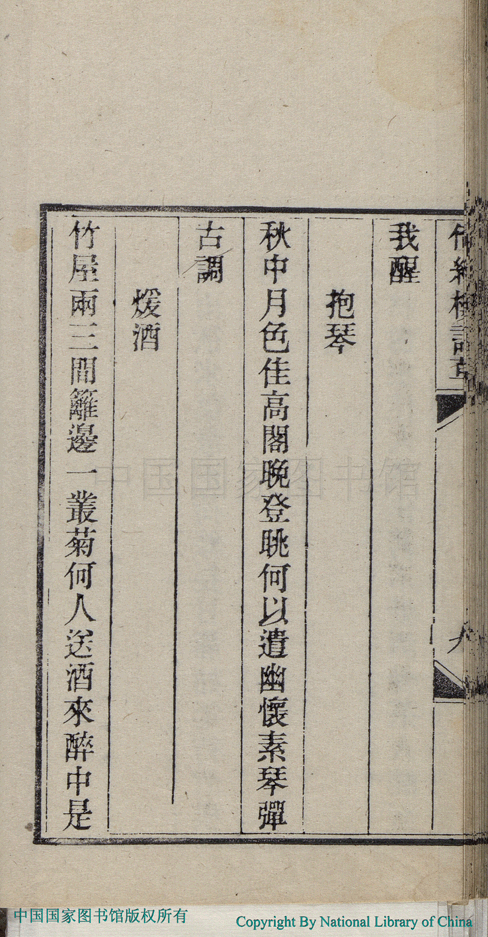 我醒
抱琴
秋中月色佳高閣晚登眺何以遺幽懷素琴彈
古調
煖酒
竹屋兩三間籬邊一叢菊何人送酒來醉中是
中国国家图书馆
中国国家图书馆版权所有
Copyright By National Library of China